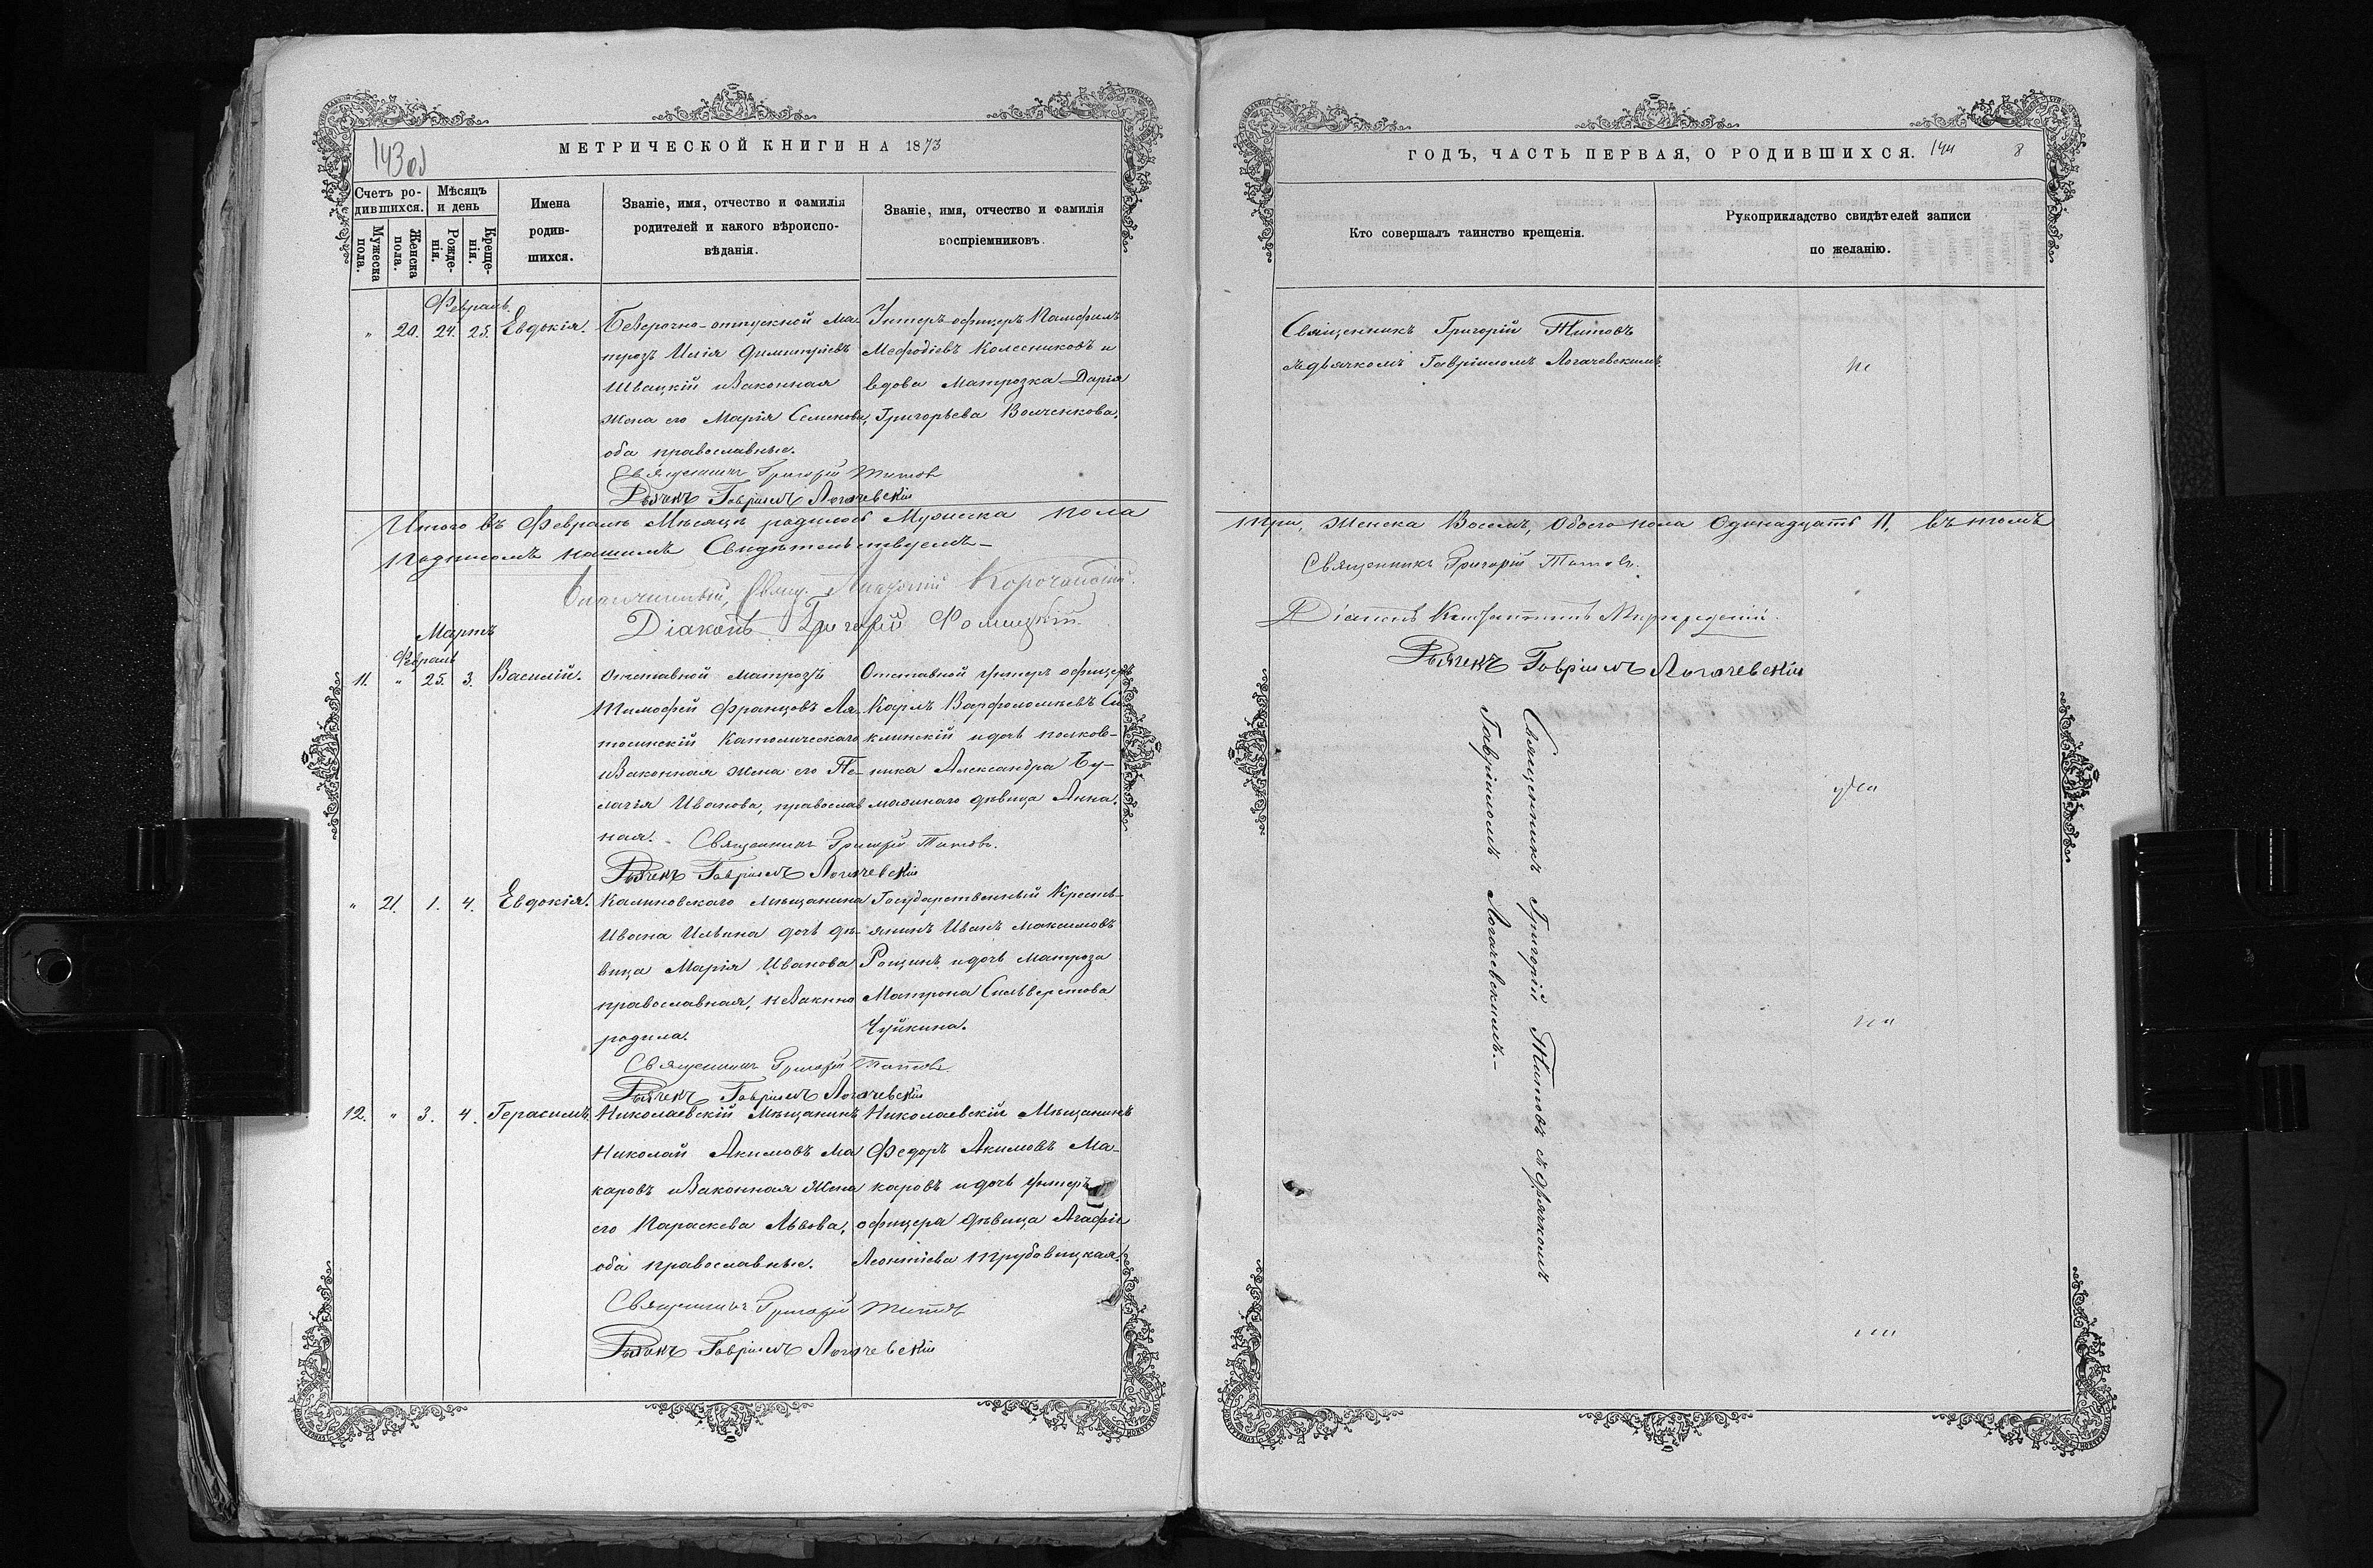 143 об
МЕТРИЧЕСКОЙ КНИГИ НА 1873
Счетъ ро-
дившихся.
Мѣсяцъ
и день
Мужеска
пола.
Женска
пола.
Рожде-
нія.
Креще-
нія.
Имена
родив-
шихся.
Званіе, имя, отчество и фамилія
родителей и какого вѣроиспо-
вѣданія.
Званіе, имя, отчество и фамилія
воспріемниковъ.
Февраль.
" 20. 24. 25. Евдокія.
Безсрочно-отпускной ма-
трозъ Илія Димитріевъ
Швацкій и законная
жена его Марія Семенова,
оба православные.
Унтеръ-офицеръ Памфилъ
Мефодіевъ Колесниковъ и
вдова матрозка Дарія
Григорьева Волченкова.
Священникъ Григорій Титовъ
Дьячекъ Гавріилъ Логачевскій
Итого въ Февралѣ мѣсяцѣ родилось Мужеска пола
Подписомъ нашимъ Свидѣтельствуемъ-
Корочанскій.
Діаконъ Григорій Фомицкій.
Мартъ
Февраль
11. " 25. 3. Василій.
Отставной матрозъ
Тимофей Францовъ Ля-
тосинскій Католическаго
и законная жена его Пе-
лагія Иванова, православ
ная.
Отставной унтеръ офицеръ
Карлъ Варфоломѣевъ Си-
клинскій и дочь полков-
ника Александра Бу-
мажнаго дѣвица Анна.
Священникъ Григорій Титовъ.
Дьячекъ Гавріилъ Логачевскій
" 21. 1. 4. Евдокія.
Калиновскаго мѣщанина
Ивана Ильина дочь дѣ-
вица Марія Иванова
православная, незаконно
родила.
Государственный Кресть-
янинъ Иванъ Максимовъ
Рощинъ и дочь матроза
Матрона Сильверстова
Чуйкина.
Священникъ Григорій Титовъ
Дьячекъ Гавріилъ Логачевскій
12. " 3. 4. Герасимъ.
Николаевскій Мѣщанинъ
Николай Акимовъ Ма
каровъ и законная жена
его Параскева Львова,
оба православные.
Николаевскій Мѣщанинъ
Федоръ Акимовъ Ма-
каровъ и дочь унтеръ
офицера дѣвица Агафія
Леонтіева Трубовицкая.
Священникъ Григорій Титовъ
Дьячекъ Гавріилъ Логачевскій
ГОДЪ, ЧАСТЬ ПЕРВАЯ, О РОДИВШИХСЯ. 144 8
Кто совершалъ таинство крещенія.
Рукоприкладство свидѣтелей записи
по желанію.
Священникъ Григорій Титовъ
съ дьячкомъ Гавріиломъ Логачевскимъ.
три, Женска Восемь, Обоего пола Одинадцать 11. въ томъ
Священникъ Григорій Титовъ.
Діаконъ Константинъ
Дьячекъ Гавріилъ Логачевскій
Священникъ Григорій Титовъ съ дьячкомъ
Гавріиломъ Логачевскимъ.-